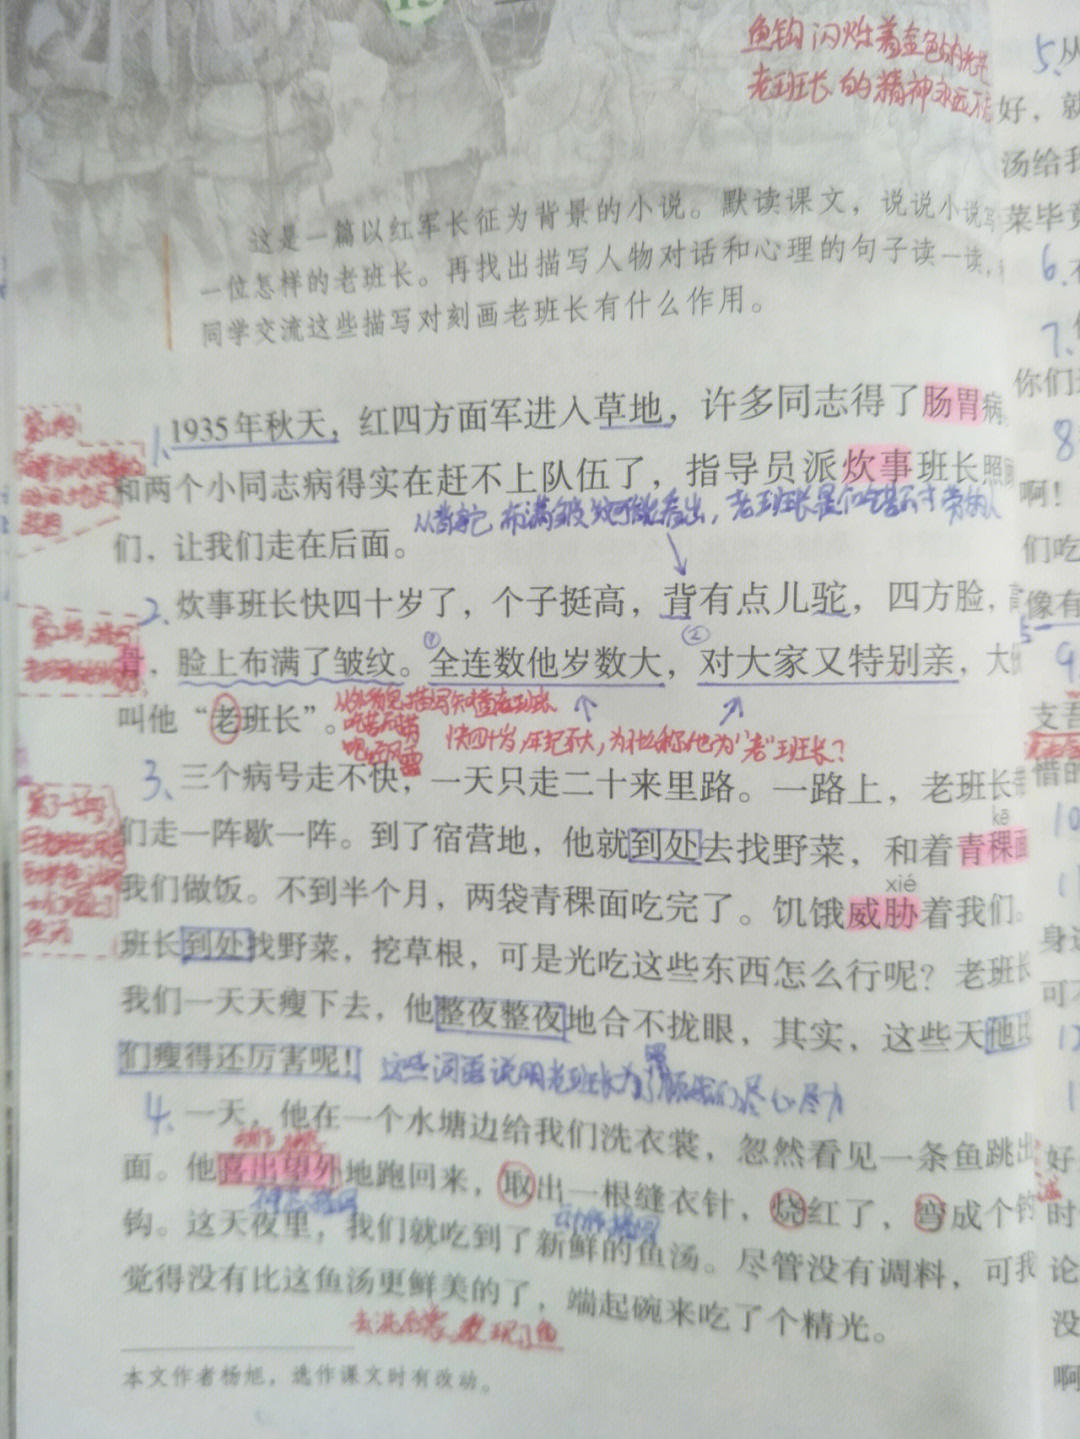 鱼钩闪烁着金色的光芒
老班长的精神永远不
这是一篇以红军长征为背景的小说。默读课文，说说小说写
一位怎样的老班长。再找出描写人物对话和心理的句子读一读，
同学交流这些描写对刻画老班长有什么作用。
1、1935年秋天，红四方面军进入草地，许多同志得了肠胃病。
和两个小同志病得实在赶不上队伍了，指导员派炊事班长照顾
从背驼
老班长是个吃苦
们，让我们走在后面。
2、炊事班长快四十岁了，个子挺高，背有点儿驼，四方脸，高
① ②
骨，脸上布满了皱纹。全连数他岁数大，对大家又特别亲，大伙
叫他“老班长”。
快四十岁，年纪不大，为什么称他为“老”班长？
3、三个病号走不快，一天只走二十来里路。一路上，老班长带
kē
们走一阵歇一阵。到了宿营地，他就到处去找野菜，和着青稞面
我们做饭。不到半个月，两袋青稞面吃完了。饥饿威胁着我们。
xié
班长到处找野菜，挖草根，可是光吃这些东西怎么行呢？老班长
我们一天天瘦下去，他整夜整夜地合不拢眼，其实，这些天他比
们瘦得还厉害呢！
这些词语说明老班长为了照顾我们尽心尽力
4、一天，他在一个水塘边给我们洗衣裳，忽然看见一条鱼跳出
面。他喜出望外地跑回来，取出一根缝衣针，烧红了，弯成个钓
神态描写
动作描写
钩。这天夜里，我们就吃到了新鲜的鱼汤。尽管没有调料，可我
觉得没有比这鱼汤更鲜美的了，端起碗来吃了个精光。
去洗衣裳，发现了鱼
本文作者杨旭，选作课文时有改动。
5、从
好，就
汤给我
菜毕竟
6、
7、
你们
8
啊！
们吃
像有
9
支吾
惜的
10
身边
可不
12
好
时
论
没
啊